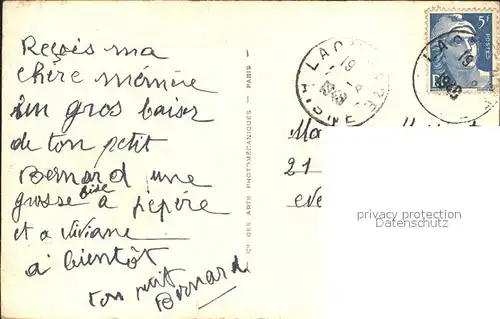 Reçois ma
chère mémère
un gros baiser
de ton petit
Bernard une
grosse bise à pépère
et a Viviane
à bientôt
ton petit
Bernard
CH. DES ARTS PHOTOMÉCANIQUES - PARIS
19
1949
AISNE
5F
POSTES
19
1949
21
privacy protection
Datenschutz